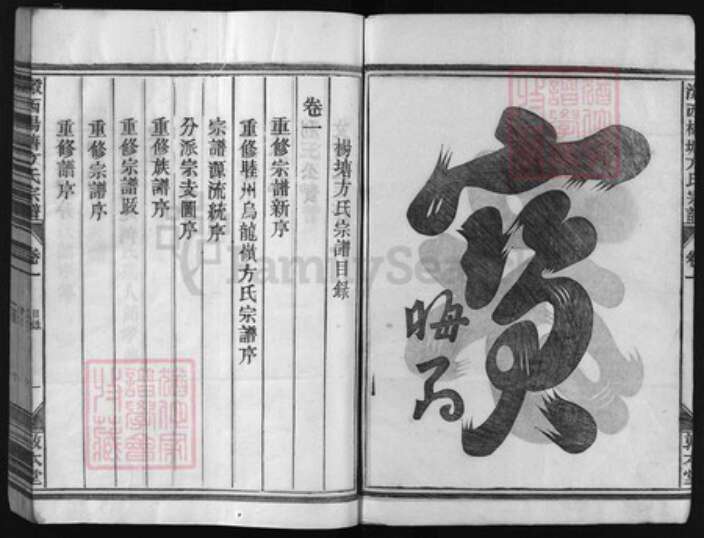 寶
晦翁
敦本堂
楊塘方氏宗譜目錄
卷一
重修宗譜新序
重修睦州烏龍嶺方氏宗譜序
宗譜源流統序
分派宗支圖序
重修族譜序
重修宗譜跋
重修宗譜序
重修譜序
方氏宗譜
卷一
目錄
敦本堂
FamilySearch